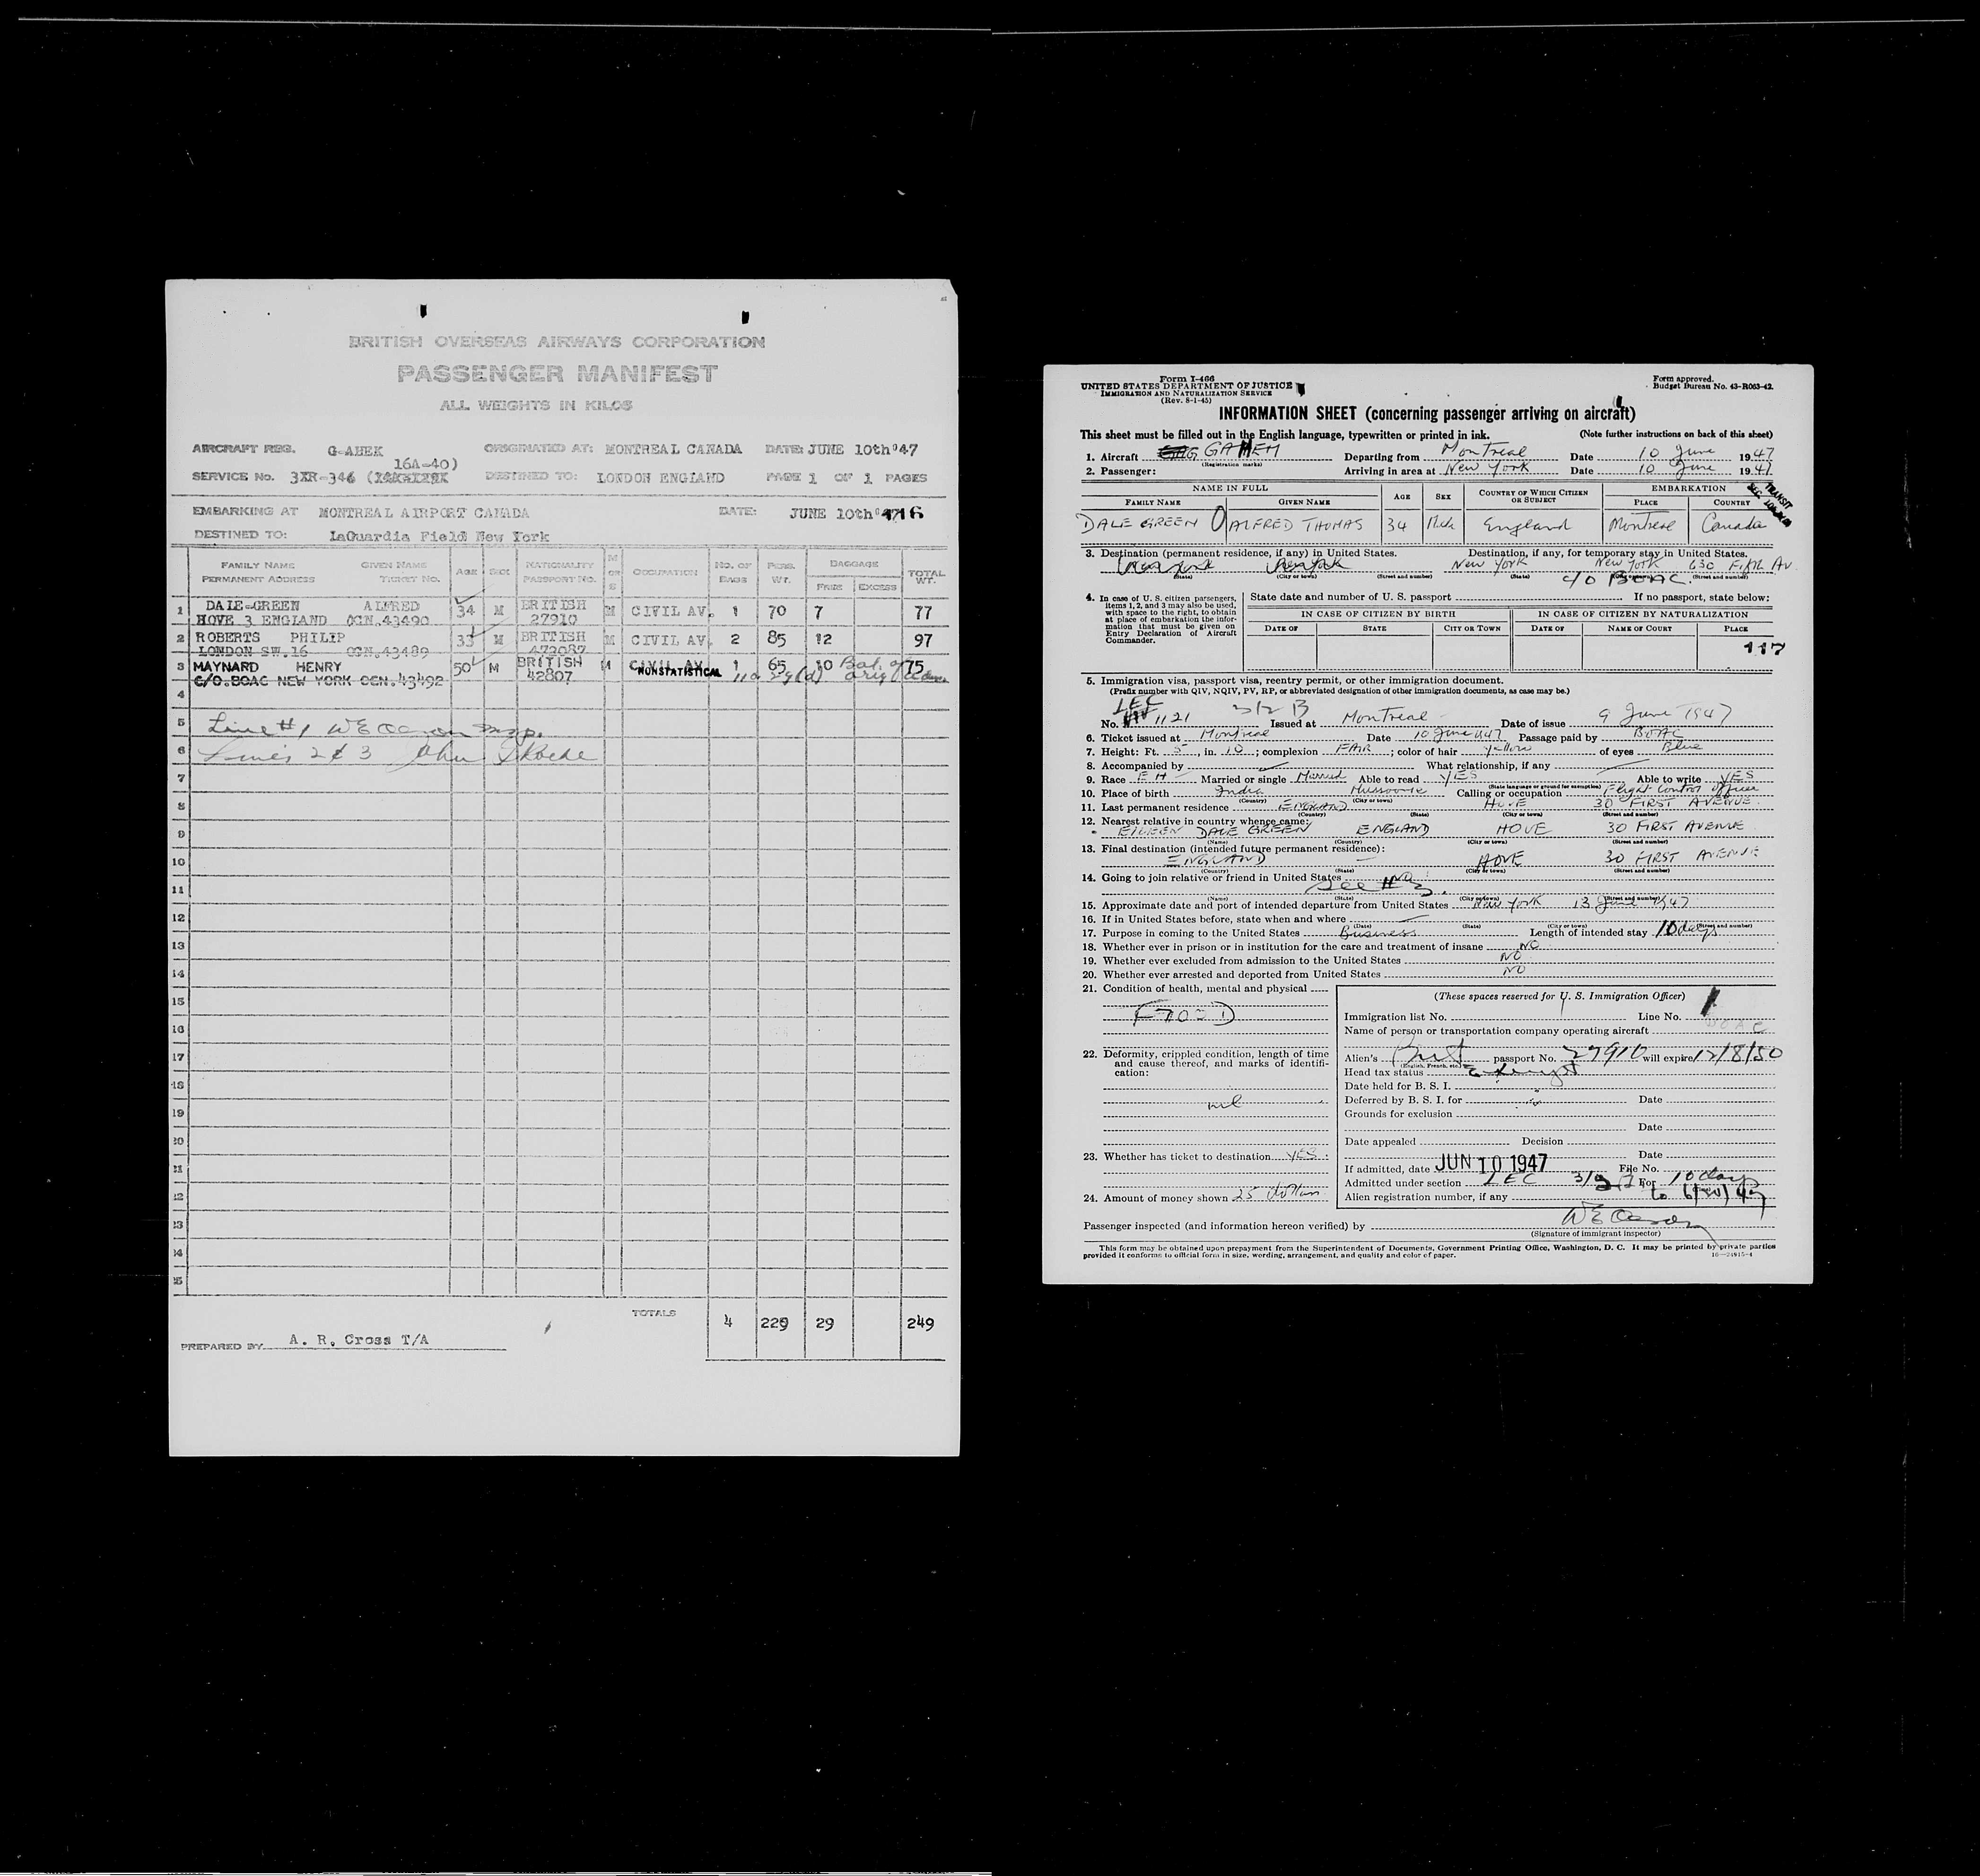 BRITISH OVERSEAS AIRWAYS CORPORATION
PASSENGER MANIFEST
ALL WEIGHTS IN KILOS
AIRCRAFT REG. G-AHEK ORIGINATED AT: MONTREAL CANADA DATE: JUNE 10th'47
16A-40)
SERVICE No. 3XR-346 ( DESTINED TO: LONDON ENGLAND PAGE 1 OF 1 PAGES
EMBARKING AT MONTREAL AIRPORT CANADA DATE: JUNE 10th'
DESTINED TO: LaGuardia Field New York
FAMILY NAME GIVEN NAME AGE SEX NATIONALITY M OR S OCCUPATION NO. OF BAGS PERS. WT. BAGGAGE TOTAL WT.
PERMANENT ADDRESS TICKET NO. PASSPORT NO. FREE EXCESS
1 DALE-GREEN ALFRED 34 M BRITISH M CIVIL AV. 1 70 7 77
HOVE 3 ENGLAND OCN.43490 27910
2 ROBERTS PHILIP 33 M BRITISH M CIVIL AV. 2 85 12 97
LONDON SW.16 OCN.43489 472087
3 MAYNARD HENRY 50 M BRITISH M CIVIL AV. 1 65 10 Bal. of 75
C/O.BOAC NEW YORK OCN.43492 42807 NONSTATISTICAL orig
4
5 Line #1 W E insp.
6 Lines 2 & 3 John
7
8
9
10
11
12
13
14
15
16
17
18
19
20
21
22
23
24
25
TOTALS 4 229 29 249
PREPARED BY A. R. Cross T/A
Form I-466
UNITED STATES DEPARTMENT OF JUSTICE
IMMIGRATION AND NATURALIZATION SERVICE
(Rev. 8-1-45)
Form approved.
Budget Bureau No. 43-R063-42.
INFORMATION SHEET (concerning passenger arriving on aircraft)
This sheet must be filled out in the English language, typewritten or printed in ink. (Note further instructions on back of this sheet)
1. Aircraft GAHEM Departing from Montreal Date 10 June 1947
(Registration marks)
2. Passenger: Arriving in area at New York Date 10 June 1947
TRANSIT
NAME IN FULL AGE SEX COUNTRY OF WHICH CITIZEN OR SUBJECT EMBARKATION
FAMILY NAME GIVEN NAME PLACE COUNTRY
DALE GREEN ALFRED THOMAS 34 Male England Montreal Canada
3. Destination (permanent residence, if any) in United States. Destination, if any, for temporary stay in United States.
New York New York 630 Fifth Av.
(State) (City or town) (Street and number) (State) (Street and number)
c/o BOAC.
4. In case of U. S. citizen passengers, items 1, 2, and 3 may also be used, with space to the right, to obtain at place of embarkation the information that must be given on Entry Declaration of Aircraft Commander.
State date and number of U. S. passport If no passport, state below:
IN CASE OF CITIZEN BY BIRTH IN CASE OF CITIZEN BY NATURALIZATION
DATE OF STATE CITY OR TOWN DATE OF NAME OF COURT PLACE
117
5. Immigration visa, passport visa, reentry permit, or other immigration document.
(Prefix number with QIV, NQIV, PV, RP, or abbreviated designation of other immigration documents, as case may be.)
LEC
No. 1121 3/2 B Issued at Montreal Date of issue 9 June 1947
6. Ticket issued at Montreal Date 10 June 1947 Passage paid by BOAC
7. Height: Ft. 5, in. 10; complexion FAIR; color of hair yellow of eyes Blue
8. Accompanied by What relationship, if any
9. Race EH Married or single Married Able to read YES Able to write YES
(State language or ground for exemption)
10. Place of birth India Mussoorie Calling or occupation Flight Control Officer
(Country) (City or town)
11. Last permanent residence ENGLAND HOVE 30 FIRST AVENUE.
(Country) (State) (City or town) (Street and number)
12. Nearest relative in country whence came:
EILEEN DALE GREEN ENGLAND HOVE 30 FIRST AVENUE
(Name) (Country) (City or town) (Street and number)
13. Final destination (intended future permanent residence):
ENGLAND HOVE 30 FIRST AVENUE
(Country) (State) (City or town) (Street and number)
14. Going to join relative or friend in United States
See #3.
(Name) (State) (City or town) (Street and number)
15. Approximate date and port of intended departure from United States New York 13 June 1947
16. If in United States before, state when and where
(Date) (State) (City or town) (Street and number)
17. Purpose in coming to the United States Business Length of intended stay 10 days
18. Whether ever in prison or in institution for the care and treatment of insane NO
19. Whether ever excluded from admission to the United States NO
20. Whether ever arrested and deported from United States NO
21. Condition of health, mental and physical
GOOD
22. Deformity, crippled condition, length of time and cause thereof, and marks of identification:
nil
23. Whether has ticket to destination YES.
24. Amount of money shown 25 dollars
(These spaces reserved for U. S. Immigration Officer)
Immigration list No. Line No. 1
Name of person or transportation company operating aircraft BOAC
Alien's Brit passport No. 27910 will expire 12/8/50
(English, French, etc.)
Head tax status exempt
Date held for B. S. I.
Deferred by B. S. I. for Date
Grounds for exclusion
Date
Date appealed Decision
Date
If admitted, date JUN 10 1947 File No.
Admitted under section LEC For 10 days
Alien registration number, if any to
Passenger inspected (and information hereon verified) by W E
(Signature of immigrant inspector)
This form may be obtained upon prepayment from the Superintendent of Documents, Government Printing Office, Washington, D. C. It may be printed by private parties
provided it conforms to official form in size, wording, arrangement, and quality and color of paper. 16—24915-4